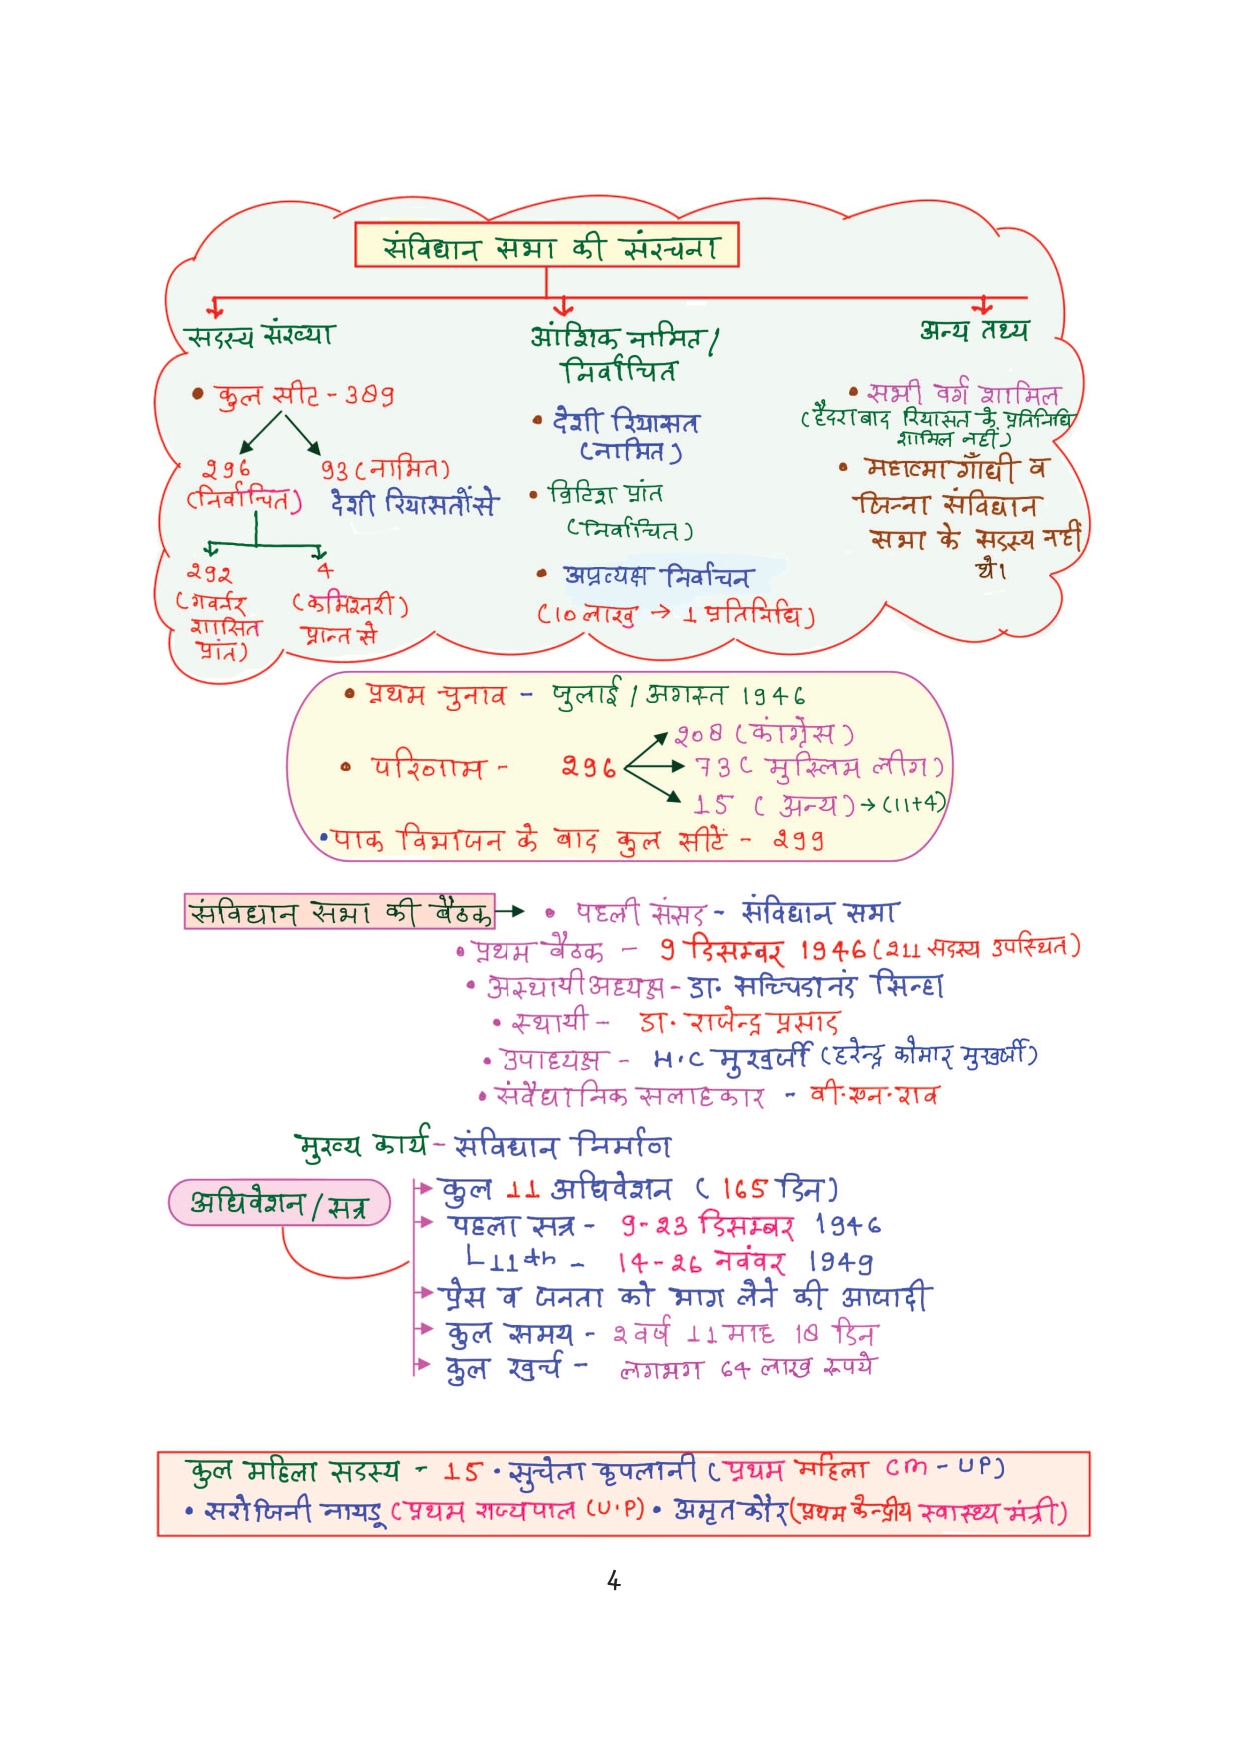 संविधान सभा की संरचना
सदस्य संख्या
• कुल सीट - 389
296
(निर्वाचित)
93 (नामित)
देशी रियासतों से
292
(गवर्नर
शासित
प्रांत)
4
(कमिश्नरी)
प्रान्त से
आंशिक नामित /
निर्वाचित
• देशी रियासत
(नामित)
• ब्रिटिश प्रांत
(निर्वाचित)
• अप्रत्यक्ष निर्वाचन
(10 लाख → 1 प्रतिनिधि)
अन्य तथ्य
• सभी वर्ग शामिल
(हैदराबाद रियासत के प्रतिनिधि
शामिल नहीं)
• महात्मा गाँधी व
जिन्ना संविधान
सभा के सदस्य नहीं
थे।
• प्रथम चुनाव - जुलाई / अगस्त 1946
• परिणाम - 296
208 (कांग्रेस)
73 ( मुस्लिम लीग)
15 ( अन्य) → (11+4)
• पाक विभाजन के बाद कुल सीटें - 299
संविधान सभा की बैठक → • पहली संसद - संविधान सभा
• प्रथम बैठक - 9 डिसम्बर 1946 (211 सदस्य उपस्थित)
• अस्थायी अध्यक्ष - डा. सच्चिदानंद सिन्हा
• स्थायी - डा. राजेन्द्र प्रसाद
• उपाध्यक्ष - H.C मुखर्जी (हरेन्द्र कौमार मुखर्जी)
• संवैधानिक सलाहकार - वी.एन.राव
मुख्य कार्य - संविधान निर्माण
अधिवेशन / सत्र
कुल 11 अधिवेशन ( 165 दिन)
पहला सत्र - 9-23 डिसम्बर 1946
11th - 14-26 नवंवर 1949
प्रेस व जनता को भाग लेने की आजादी
कुल समय - 2 वर्ष 11 माह 18 दिन
कुल खुर्च - लगभग 64 लाख रूपये
कुल महिला सदस्य - 15 • सुचेता कृपलानी (प्रथम महिला CM - UP)
• सरोजिनी नायडू (प्रथम राज्यपाल (U.P) • अमृत कौर (प्रथम केन्द्रीय स्वास्थ्य मंत्री)
4